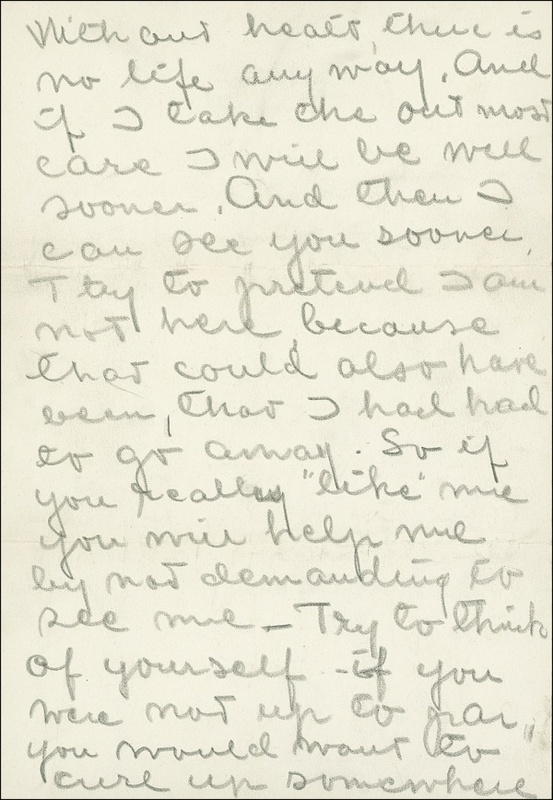 Without healt, there is
no life any way. And
if I take the out most
care I will be well
sooner. And then I
can see you sooner.
Try to pretend I am
not here, because
that could also have
been, that I had had
to go away. So if
you really "like" me
you will help me
by not demanding to
see me – Try to think
of yourself - if you
were not up to par,
you would want to
curl up somewhere